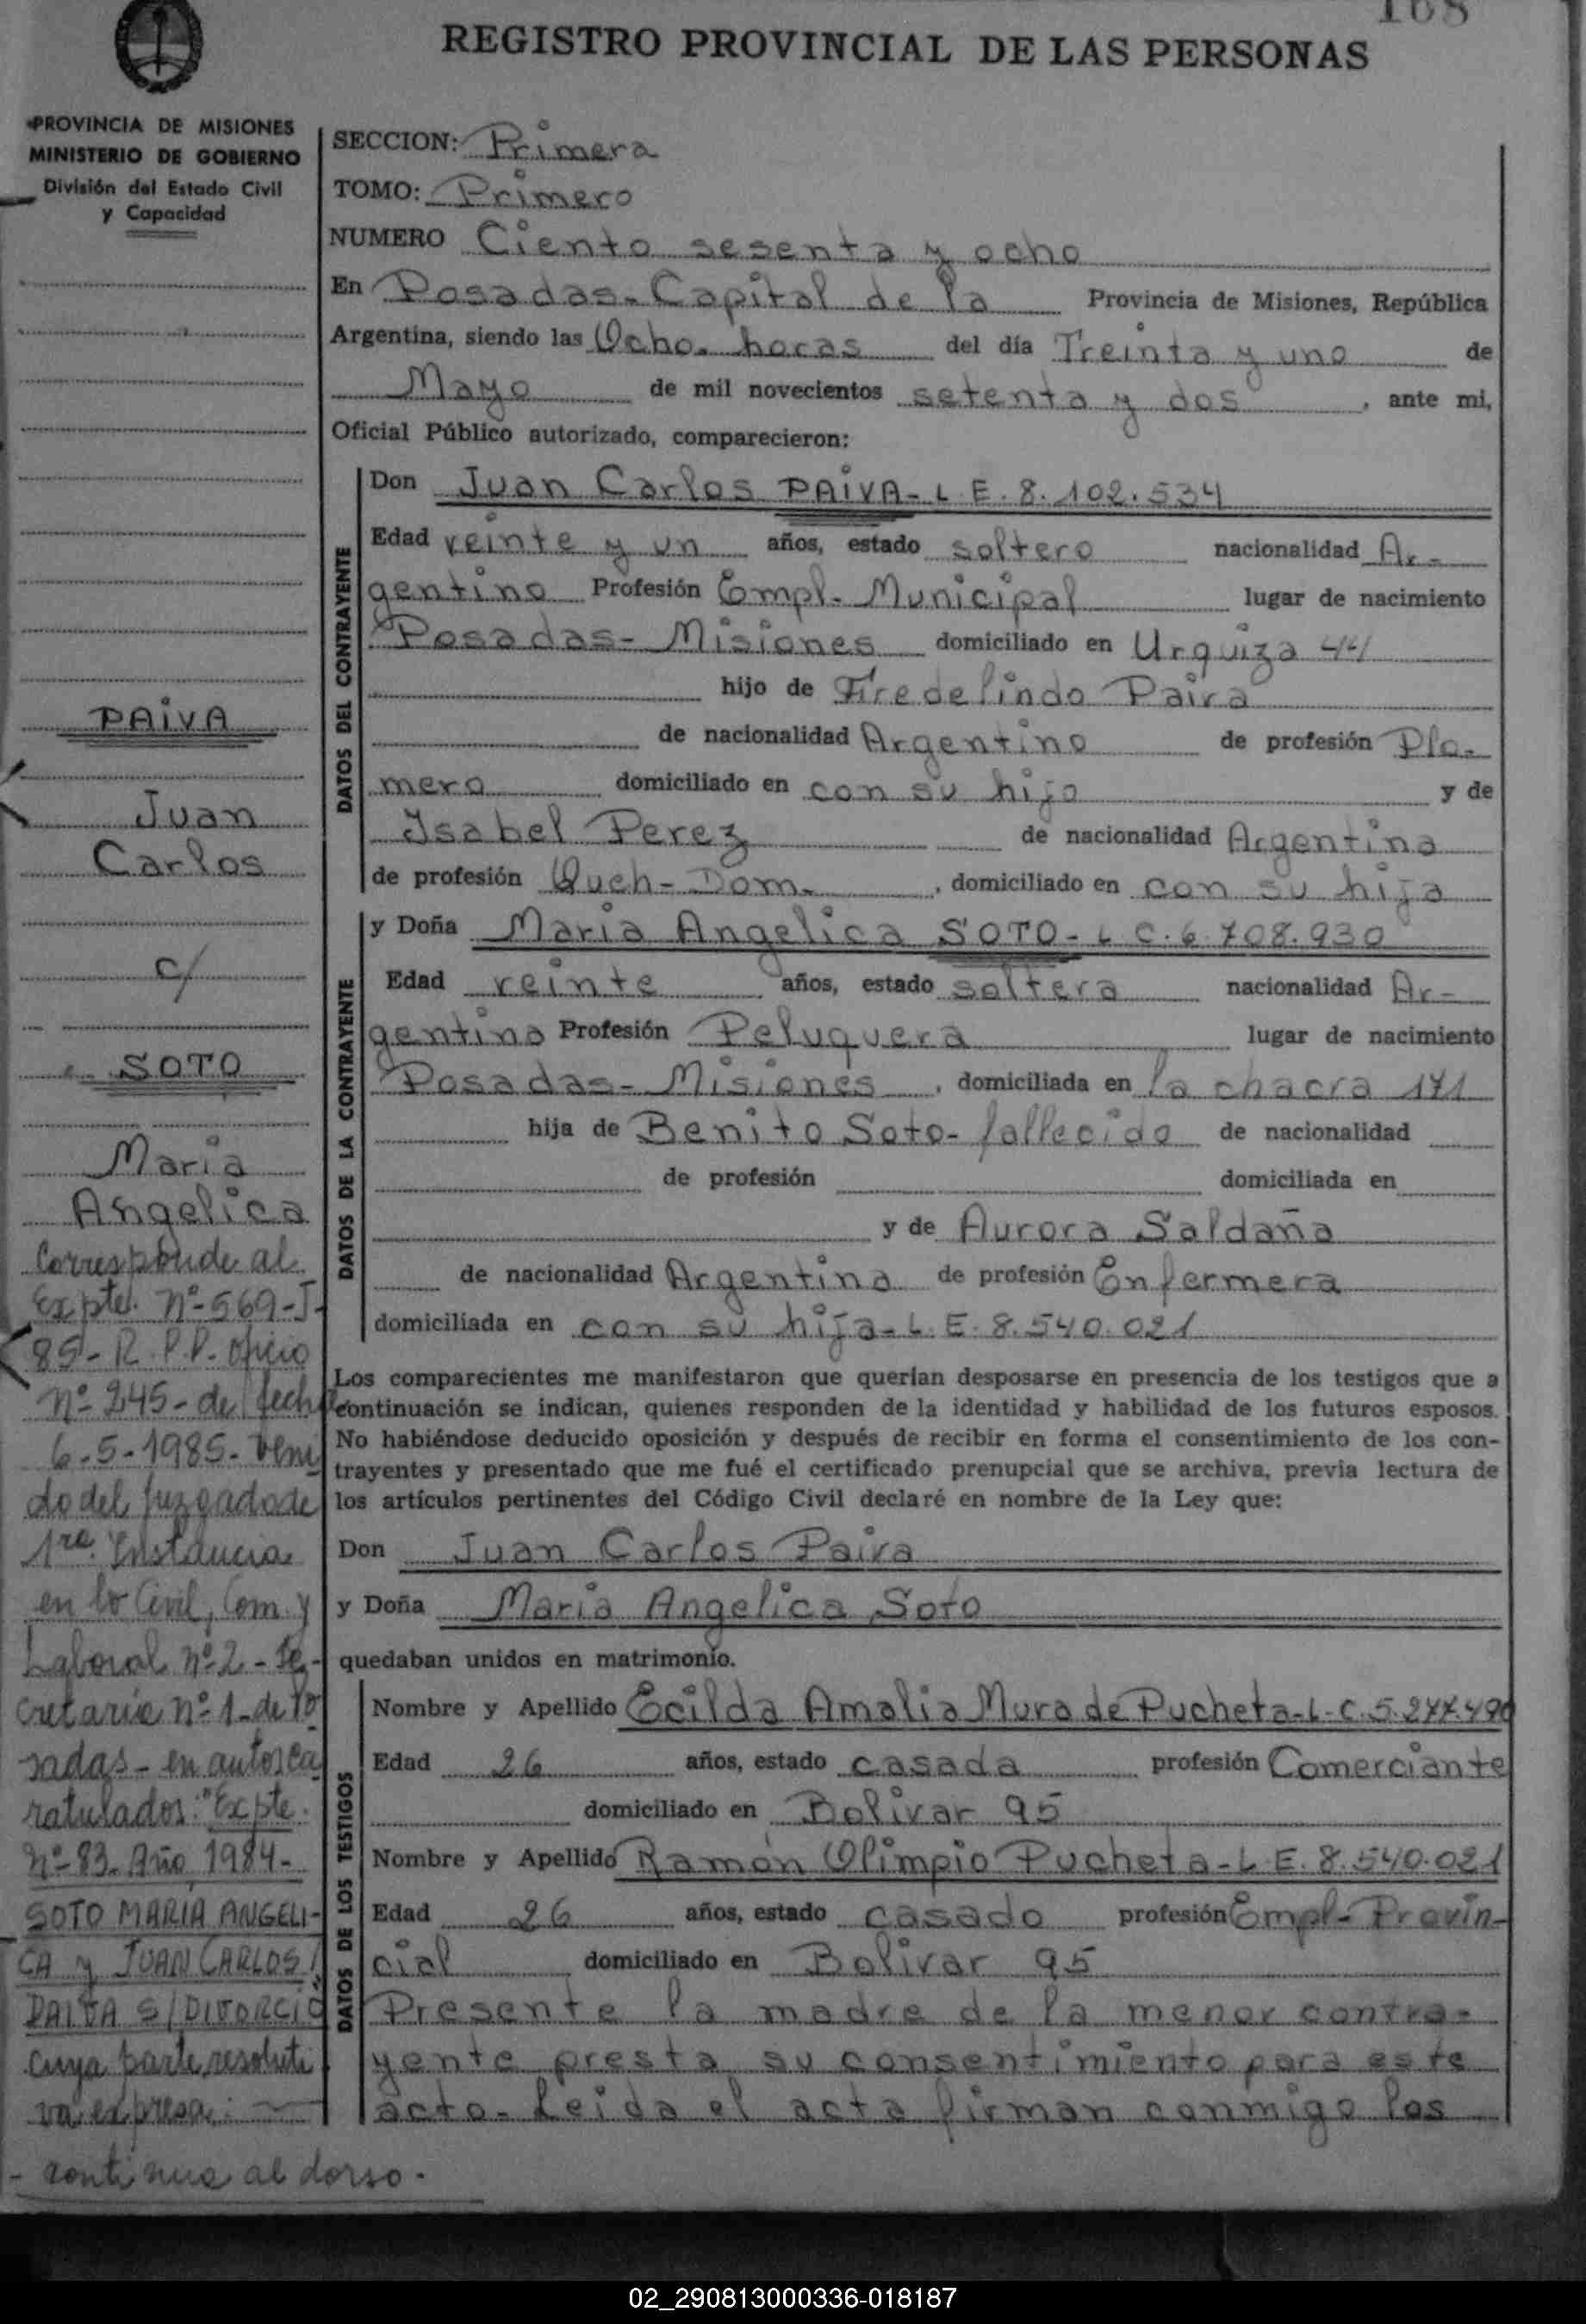 168
REGISTRO PROVINCIAL DE LAS PERSONAS
PROVINCIA DE MISIONES
MINISTERIO DE GOBIERNO
División del Estado Civil
y Capacidad
SECCION: Primera
TOMO: Primero
NUMERO Ciento sesenta y ocho
En Posadas-Capital de la Provincia de Misiones, República
Argentina, siendo las Ocho. horas del día Treinta y uno de
Mayo de mil novecientos setenta y dos, ante mi,
Oficial Público autorizado, comparecieron:
DATOS DEL CONTRAYENTE
Don Juan Carlos PAIVA- L.E. 8.102.534
Edad veinte y un años, estado soltero nacionalidad Ar-
gentino Profesión Empl- Municipal lugar de nacimiento
Posadas- Misiones domiciliado en Urquiza 44
hijo de Firedelindo Paiva
de nacionalidad Argentino de profesión Plo-
mero domiciliado en con su hijo y de
Ysabel Perez de nacionalidad Argentina
de profesión Queh-Dom., domiciliado en con su hija
DATOS DE LA CONTRAYENTE
y Doña Maria Angelica SOTO- L C. 6.708.930
Edad veinte años, estado soltera nacionalidad Ar-
gentina Profesión Peluquera lugar de nacimiento
Posadas- Misiones, domiciliada en la chacra 171
hija de Benito Soto- fallecido de nacionalidad
de profesión domiciliada en
y de Aurora Saldaña
de nacionalidad Argentina de profesión Enfermera
domiciliada en con su hija- L.E. 8.540.021
Los comparecientes me manifestaron que querían desposarse en presencia de los testigos que a
continuación se indican, quienes responden de la identidad y habilidad de los futuros esposos.
No habiéndose deducido oposición y después de recibir en forma el consentimiento de los con-
trayentes y presentado que me fué el certificado prenupcial que se archiva, previa lectura de
los artículos pertinentes del Código Civil declaré en nombre de la Ley que:
Don Juan Carlos Paiva
y Doña Maria Angelica Soto
quedaban unidos en matrimonio.
DATOS DE LOS TESTIGOS
Nombre y Apellido Ecilda Amalia Mura de Pucheta- L-C. 5.277.490
Edad 26 años, estado casada profesión Comerciante
domiciliado en Bolivar 95
Nombre y Apellido Ramón Olimpio Pucheta- L.E. 8.540.021
Edad 26 años, estado casado profesión Empl- Provin-
cial domiciliado en Bolivar 95
Presente la madre de la menor contra-
yente presta su consentimiento para este
acto- Leida el acta firman conmigo los
PAIVA
Juan
Carlos
c/
SOTO
Maria
Angelica
Corresponde al
Expte. nº-569-J-
85- R.P.P. oficio
nº- 245- de fecha
6-5-1985- Veni
do del Juzgado de
1ra. Instancia
en lo Civil, Com. y
Laboral nº-2 - Se-
cretaria nº-1- de Po
sadas- en autos ca
ratulados: "Expte.
Nº-83- Año 1984-
SOTO MARIA ANGELI-
CA y JUAN CARLOS
PAIVA S/DIVORCIO
cuya parte resoluti
va expresa:
- continua al dorso -
02_290813000336-018187